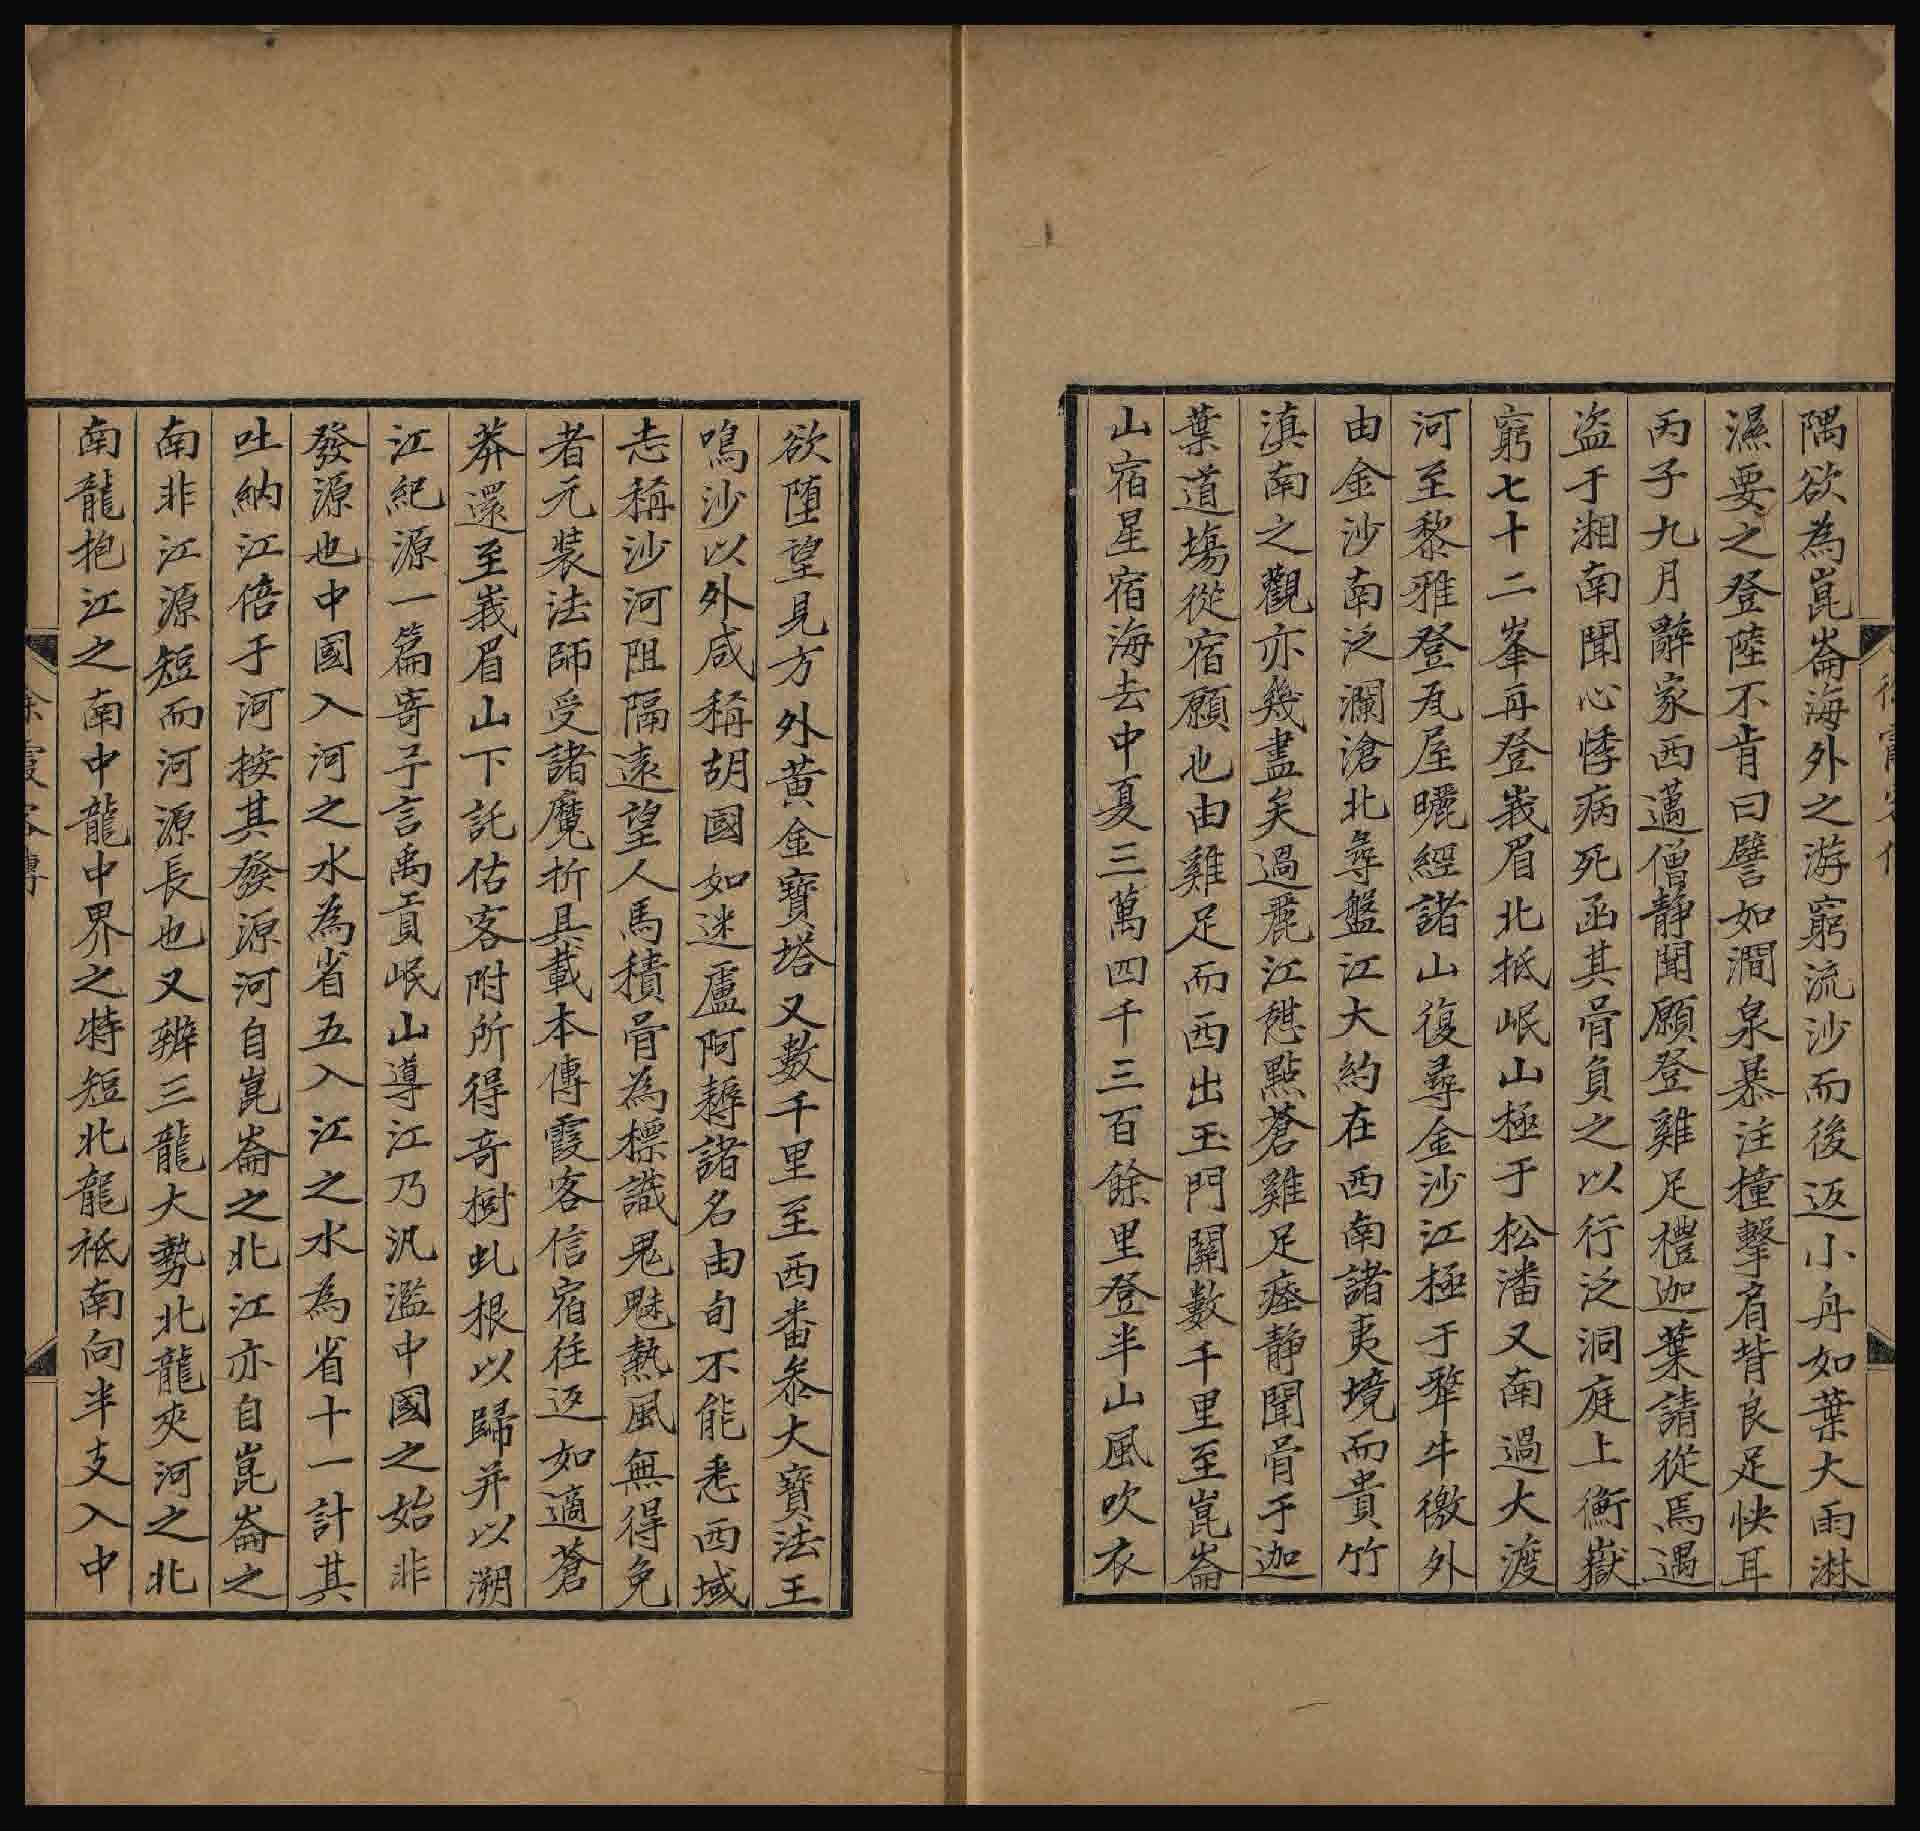 隅欲為崑崙海外之游窮流沙而後返小舟如葉大雨淋
濕要之登陸不肯曰譬如澗泉暴注撞擊肩背良足快耳
丙子九月辭家西邁僧靜聞願登雞足禮迦葉請從焉遇
盜于湘南聞心悸病死函其骨負之以行泛洞庭上衡嶽
窮七十二峯再登峩眉北抵岷山極于松潘又南過大渡
河至黎雅登瓦屋曬經諸山復尋金沙江極于犛牛徼外
由金沙南泛瀾滄北尋盤江大約在西南諸夷境而貴竹
滇南之觀亦幾盡矣過麗江憇點蒼雞足瘞靜聞骨于迦
葉道塲從宿願也由雞足而西出玉門關數千里至崑崙
山宿星宿海去中夏三萬四千三百餘里登半山風吹衣
欲墮望見方外黃金寶塔又數千里至西番叅大寶法王
鳴沙以外咸稱胡國如迷盧阿耨諸名由旬不能悉西域
志稱沙河阻隔遠望人馬積骨為標識鬼魅熱風無得免
者元奘法師受諸魔折具載本傳霞客信宿往返如適蒼
莽還至峩眉山下託估客附所得奇樹虬根以歸并以溯
江紀源一篇寄予言禹貢岷山導江乃汎濫中國之始非
發源也中國入河之水為省五入江之水為省十一計其
吐納江倍于河按其發源河自崑崙之北江亦自崑崙之
南非江源短而河源長也又辨三龍大勢北龍夾河之北
南龍抱江之南中龍中界之特短北龍祗南向半支入中
徐霞客傳